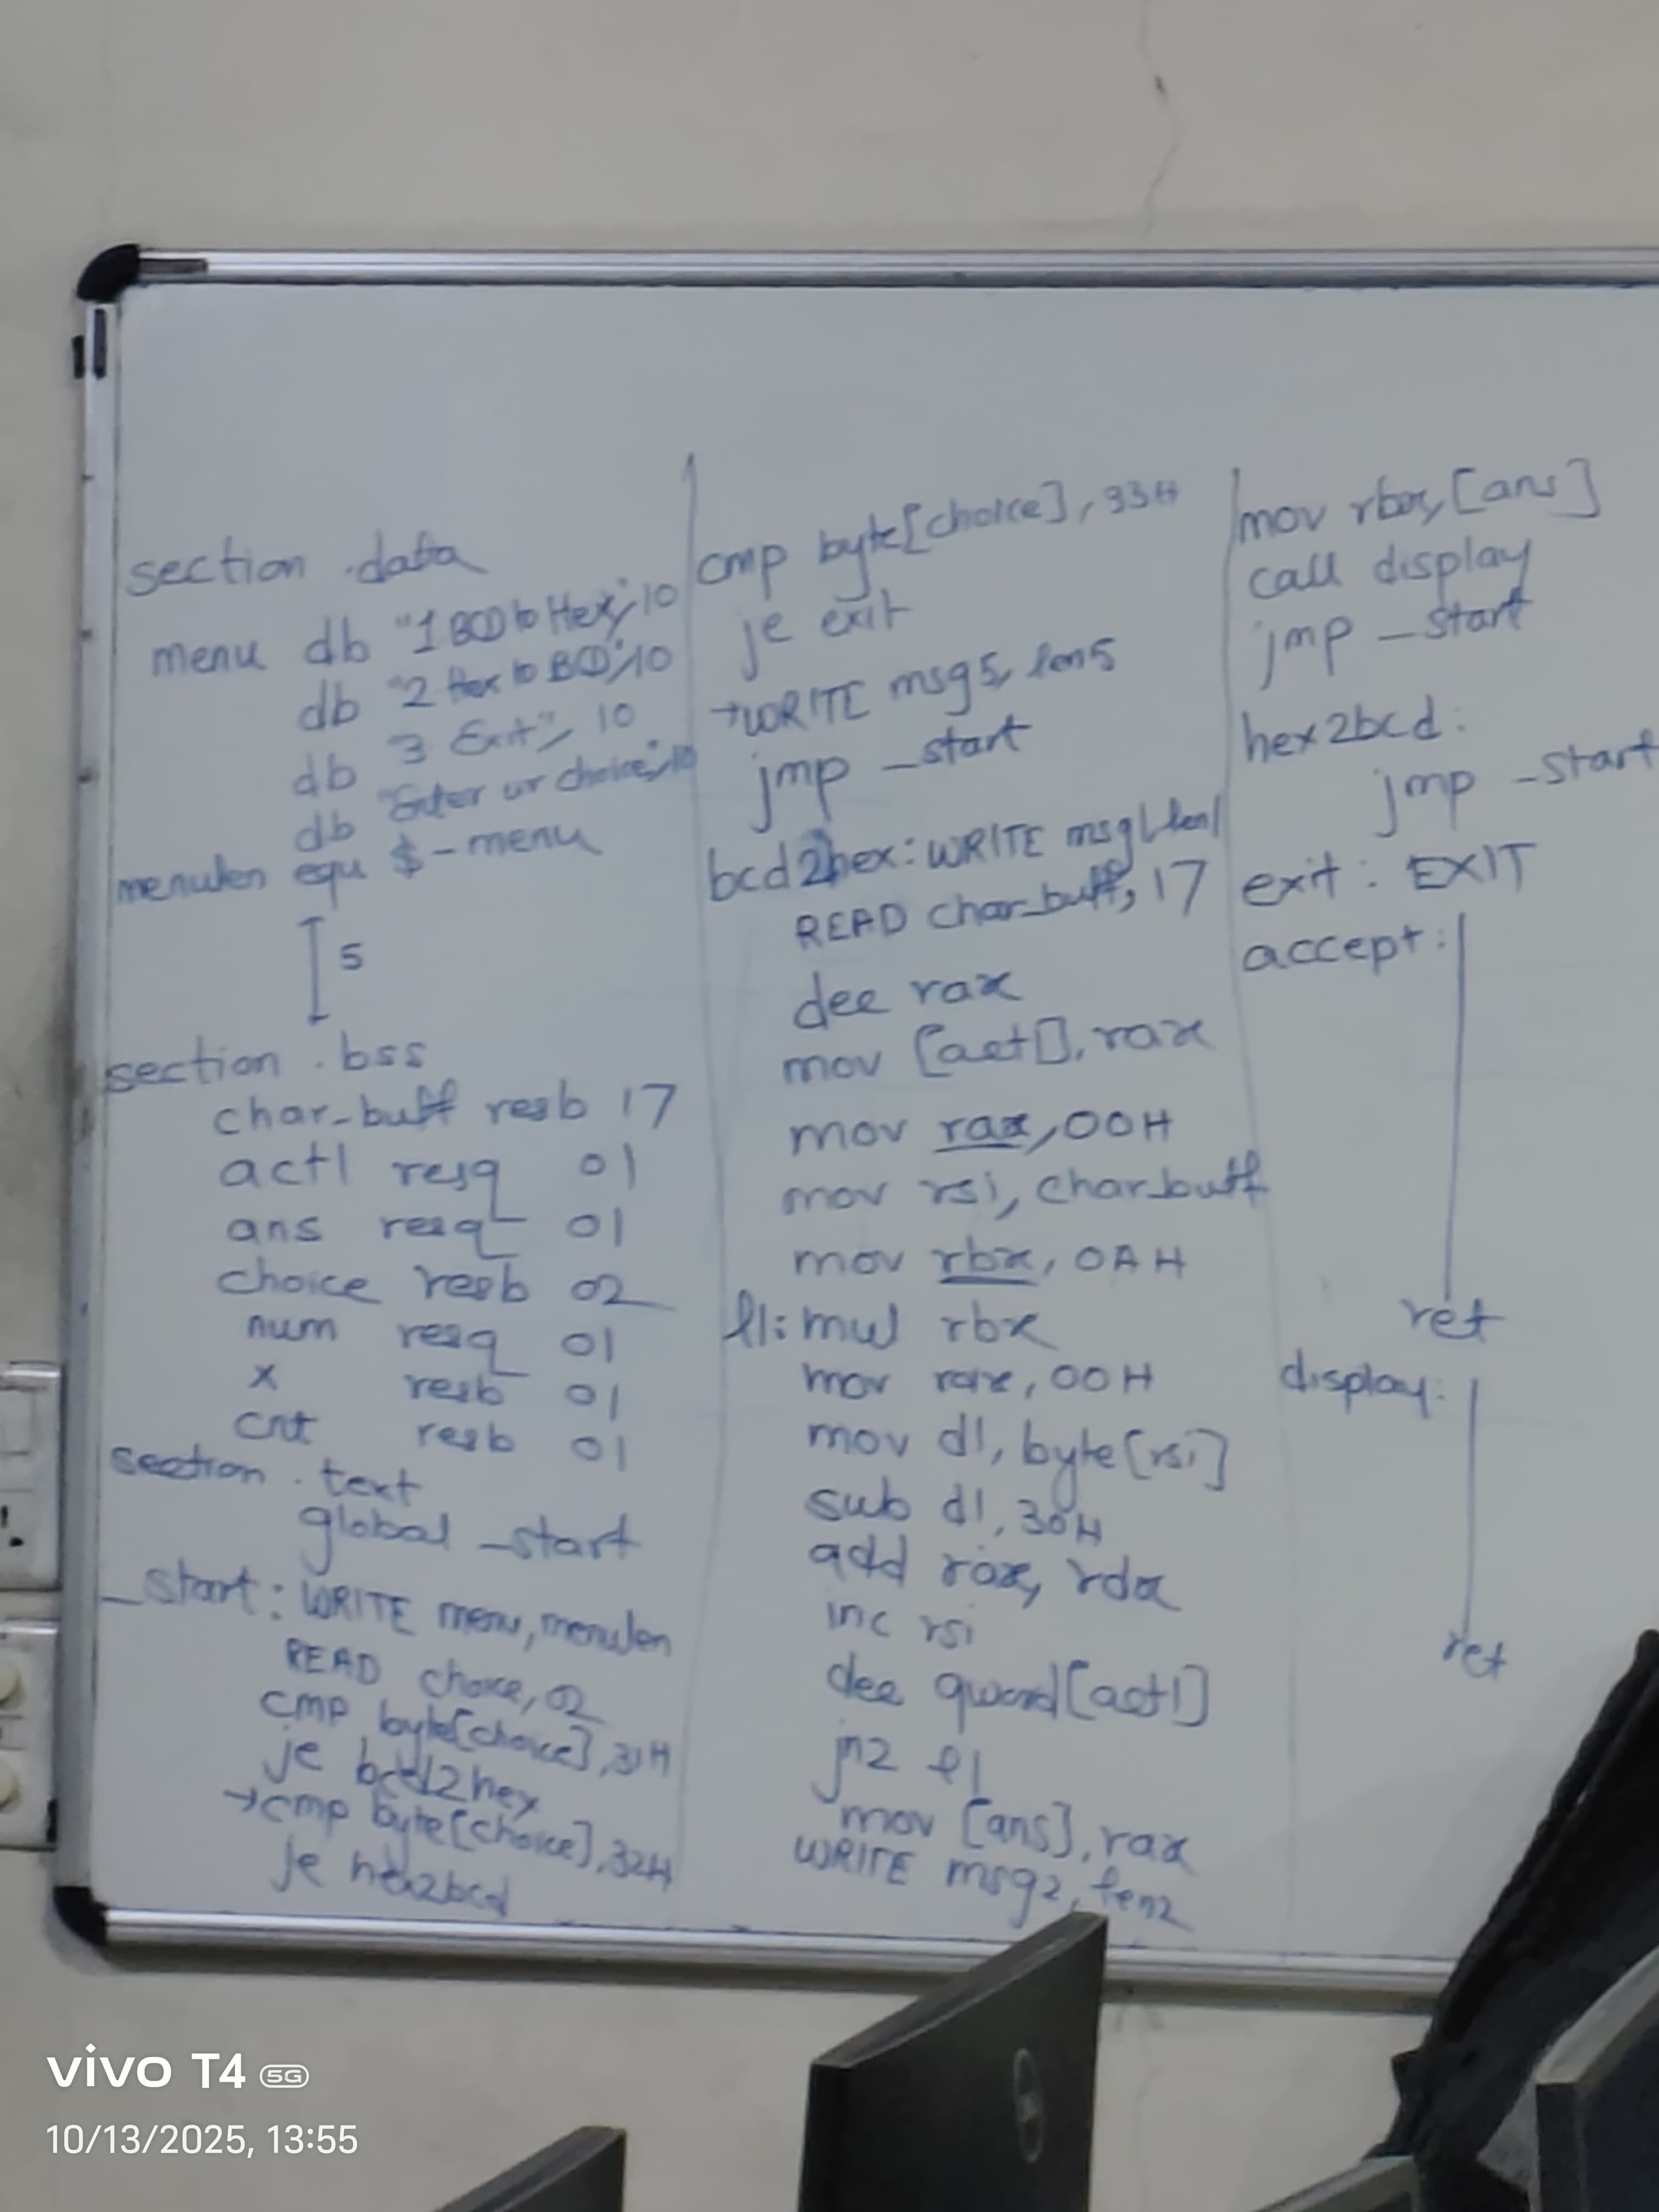 section .data
menu db "1 BCD to Hex",10
db "2 Hex to BCD",10
db "3 Exit", 10
db "Enter ur choice",10
menulen equ $-menu
5
section .bss
char_buff resb 17
actl resq 01
ans resq 01
choice resb 02
num resq 01
x resb 01
cnt resb 01
section .text
global _start
_start: WRITE menu,menulen
READ choice,02
cmp byte[choice],31H
je bcd2hex
→cmp byte[choice],32H
je hex2bcd
cmp byte[choice],33H
je exit
→WRITE msg5,len5
jmp _start
bcd2hex: WRITE msg1,len1
READ char_buff, 17
dec rax
mov [actl], rax
mov rax, 00H
mov rsi, char_buff
mov rbx, 0AH
l1: mul rbx
mov rdx, 00H
mov dl, byte[rsi]
sub dl, 30H
add rax, rdx
inc rsi
dec qword[actl]
jnz l1
mov [ans], rax
WRITE msg2, len2
mov rbx, [ans]
call display
jmp _start
hex2bcd:
jmp _start
exit: EXIT
accept:
ret
display:
ret
vivo T4 5G
10/13/2025, 13:55